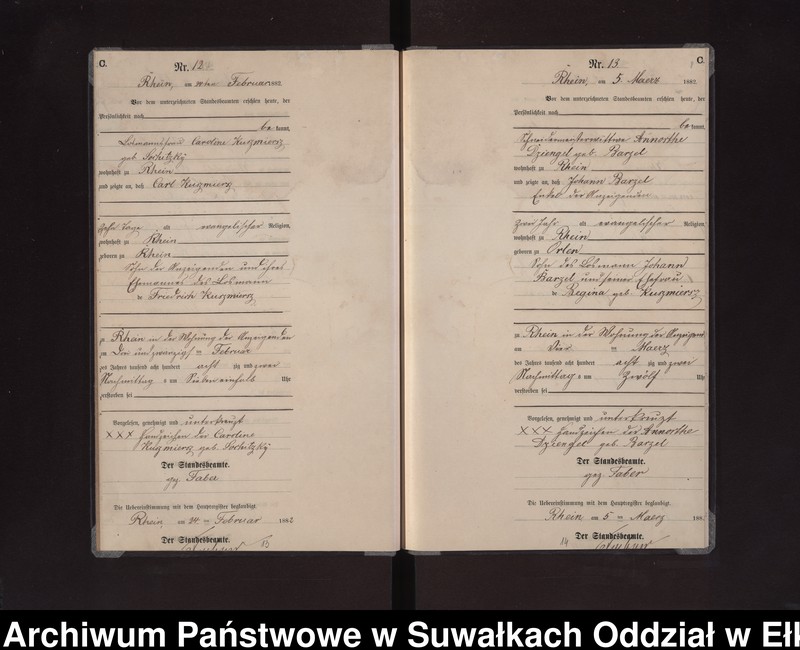 C.
Nr. 12
Rhein, am 24ten Februar 1882.
Vor dem unterzeichneten Standesbeamten erschien heute, der
Persönlichkeit nach
be kannt,
Losmannsfrau Caroline Kuzmierz
geb.
wohnhaft zu Rhein
und zeigte an, daß Carl Kuzmierz
Zehn Tage alt evangelischer Religion,
wohnhaft zu Rhein
geboren zu Rhein
Sohn der Anzeigenden und ihres
Ehemannes des Losmann
Friedrich Kuzmierz
zu Rhein in der Wohnung der Anzeigenden
am Drei und zwanzigsten Februar
des Jahres tausend acht hundert acht zig und zwei
Nachmittag s um Sieben einhalb Uhr
verstorben sei
Vorgelesen, genehmigt und unterkreuzt
XXX Handzeichen der Caroline
Kuzmierz geb.
Der Standesbeamte.
gez. Faber
Die Uebereinstimmung mit dem Hauptregister beglaubigt.
Rhein am 24 ten Februar 1882
Der Standesbeamte.
13
C.
Nr. 13
Rhein, am 5 Maerz 1882.
Vor dem unterzeichneten Standesbeamten erschien heute, der
Persönlichkeit nach
be kannt,
Schneidermeisterwittwe Annorthe
Dziengel geb. Barzel
wohnhaft zu Rhein
und zeigte an, daß Johann Barzel
Enkel der Anzeigenden
Zwei Jahr alt evangelischer Religion,
wohnhaft zu Rhein
geboren zu Orlen
Sohn des Losmann Johann
Barzel und seiner Ehefrau
Regina geb. Kuzmierz
zu Rhein in der Wohnung der Anzeigend.
am Vier ten Maerz
des Jahres tausend acht hundert acht zig und zwei
Nachmittag s um Zwölf Uhr
verstorben sei
Vorgelesen, genehmigt und unterkreuzt
XXX Handzeichen der Annorthe
Dziengel geb. Barzel
Der Standesbeamte.
gez. Faber
Die Uebereinstimmung mit dem Hauptregister beglaubigt.
Rhein am 5 ten Maerz 188
Der Standesbeamte.
14
Archiwum Państwowe w Suwałkach Oddział w Ełk